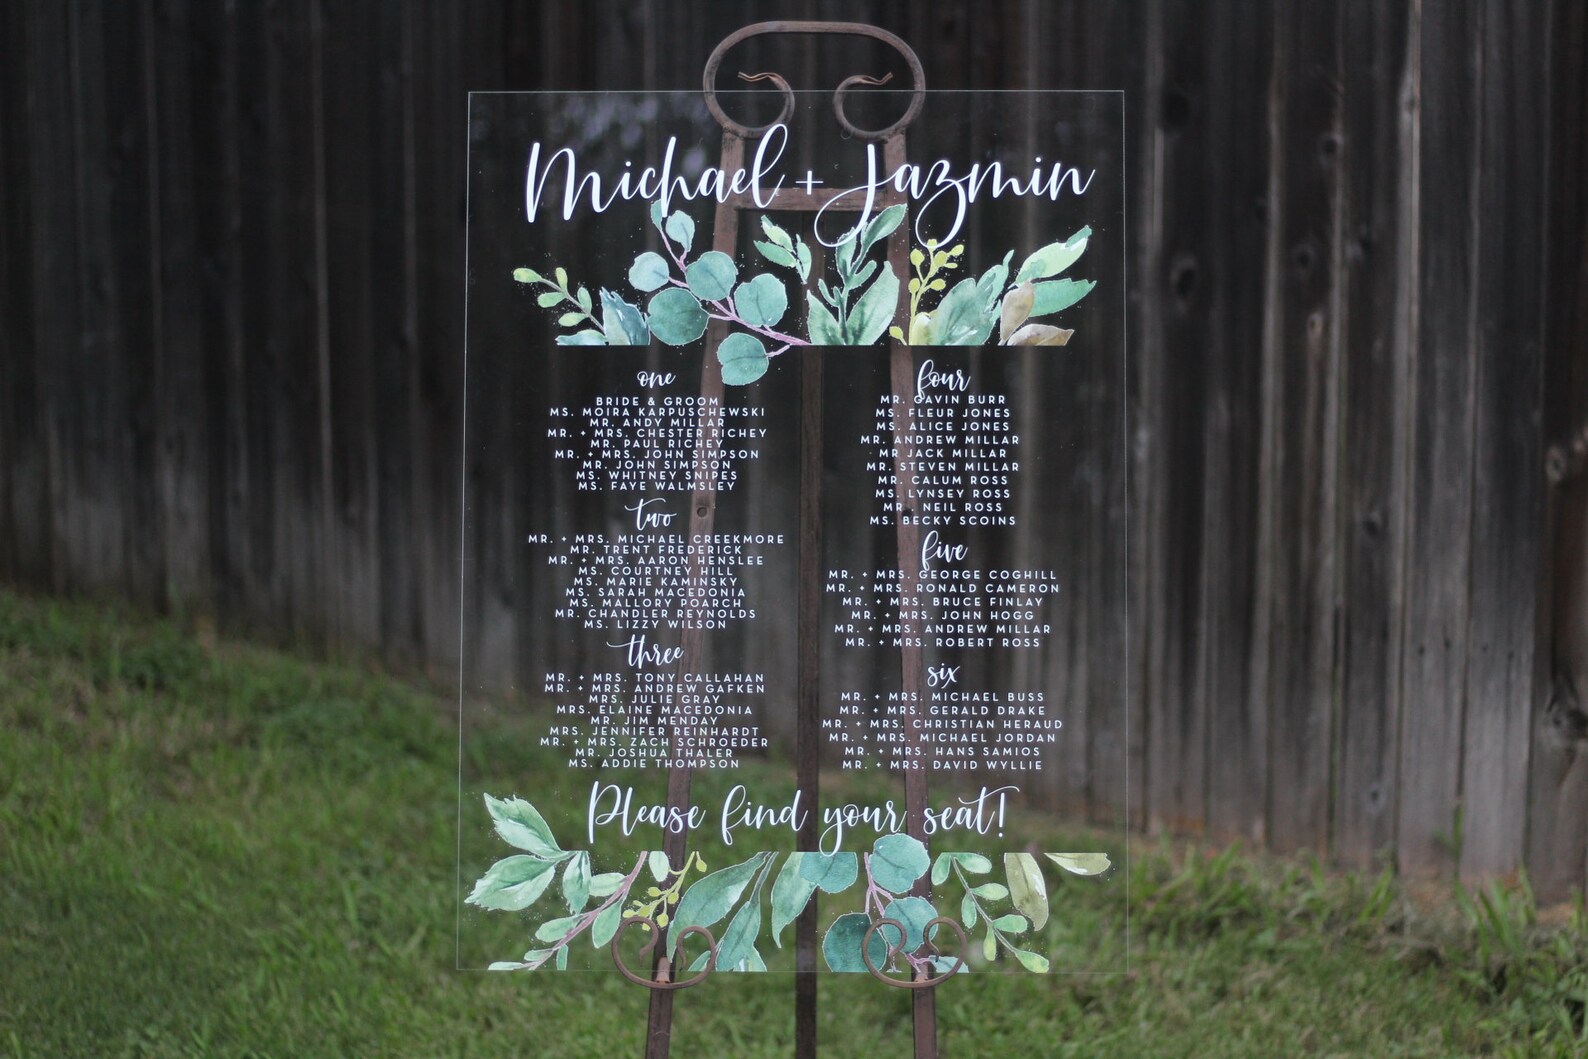 Michael + Jazmin
one
BRIDE & GROOM
MS. MOIRA KARPUSCHEWSKI
MR. ANDY MILLAR
MR. + MRS. CHESTER RICHEY
MR. PAUL RICHEY
MR. + MRS. JOHN SIMPSON
MR. JOHN SIMPSON
MS. WHITNEY SNIPES
MS. FAYE WALMSLEY
two
MR. + MRS. MICHAEL CREEKMORE
MR. TRENT FREDERICK
MR. + MRS. AARON HENSLEE
MS. COURTNEY HILL
MS. MARIE KAMINSKY
MS. SARAH MACEDONIA
MS. MALLORY POARCH
MR. CHANDLER REYNOLDS
MS. LIZZY WILSON
three
MR. + MRS. TONY CALLAHAN
MR. + MRS. ANDREW GAFKEN
MRS. JULIE GRAY
MRS. ELAINE MACEDONIA
MR. JIM MENDAY
MRS. JENNIFER REINHARDT
MR. + MRS. ZACH SCHROEDER
MR. JOSHUA THALER
MS. ADDIE THOMPSON
four
MR. GAVIN BURR
MS. FLEUR JONES
MS. ALICE JONES
MR. ANDREW MILLAR
MR JACK MILLAR
MR. STEVEN MILLAR
MR. CALUM ROSS
MS. LYNSEY ROSS
MR. NEIL ROSS
MS. BECKY SCOINS
five
MR. + MRS. GEORGE COGHILL
MR. + MRS. RONALD CAMERON
MR. + MRS. BRUCE FINLAY
MR. + MRS. JOHN HOGG
MR. + MRS. ANDREW MILLAR
MR. + MRS. ROBERT ROSS
six
MR. + MRS. MICHAEL BUSS
MR. + MRS. GERALD DRAKE
MR. + MRS. CHRISTIAN HERAUD
MR. + MRS. MICHAEL JORDAN
MR. + MRS. HANS SAMIOS
MR. + MRS. DAVID WYLLIE
Please find your seat!